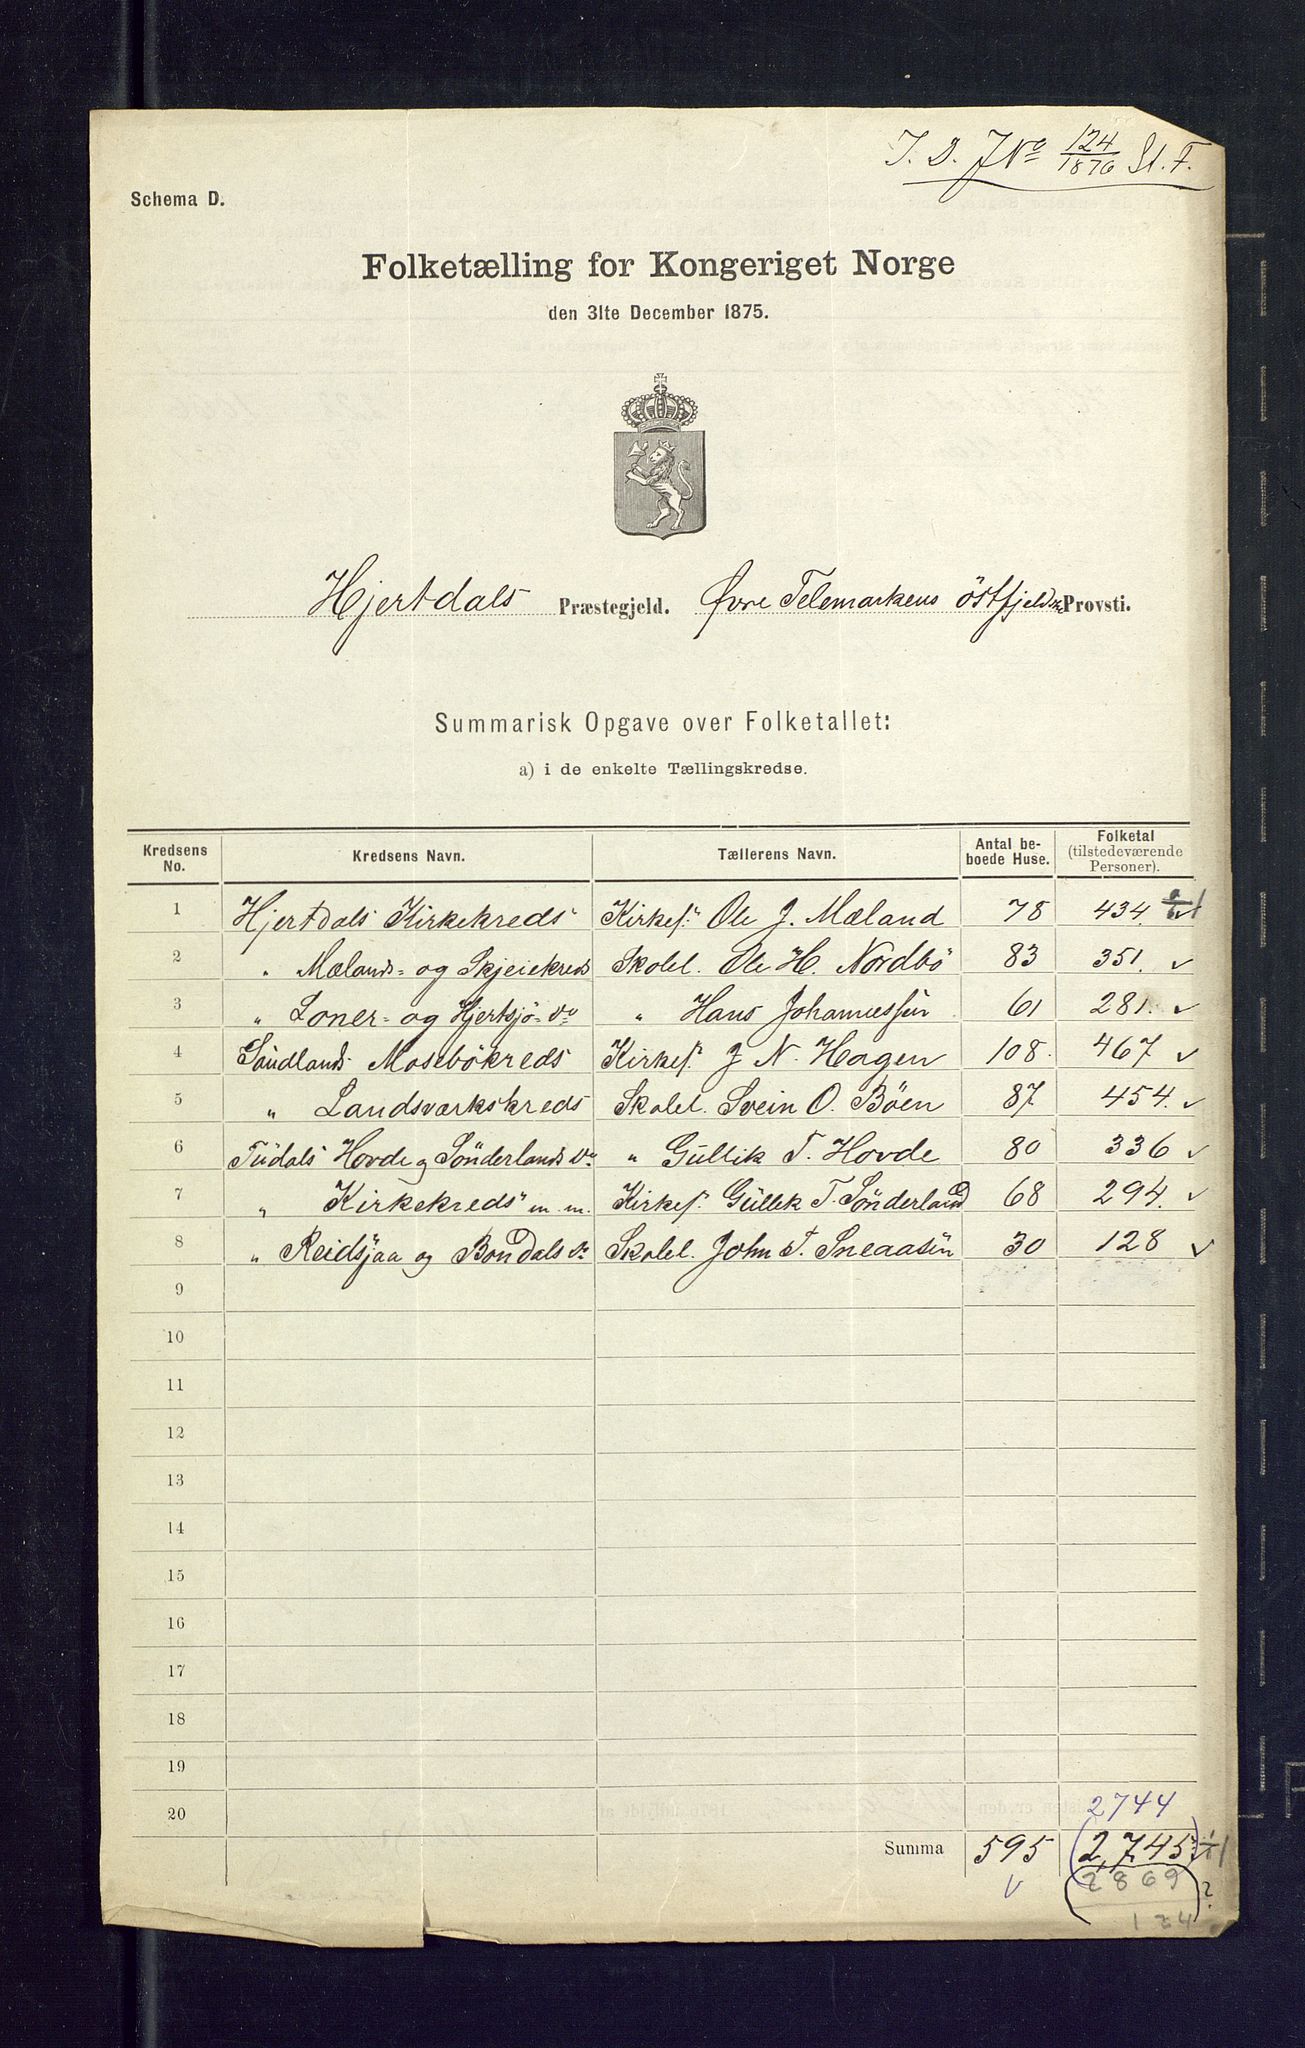 J. D. JNo 124/1876 St. F.
Schema D.
Folketælling for Kongeriget Norge
den 31te December 1875.
Hjertdals Præstegjeld. Øvre Telemarkens östfjeldske Provsti.
Summarisk Opgave over Folketallet:
a) i de enkelte Tællingskredse.
Kredsens No. Kredsens Navn. Tællerens Navn. Antal beboede Huse. Folketal (tilstedeværende Personer).
1 Hjertdals Kirkekreds Kirkes. Ole J. Mæland 78 434.
2 " Mælands- og Skjeiekreds Skolel. Ole H. Nordbö 83 351. ✓
3 " Loner- og Hjertsjö- Do " Hans Johannessen 61 281. ✓
4 Saudlands Mosebökreds Kirkes. J N. Hagen 108. 467 ✓
5 " Landsværkskreds Skolel. Svein O. Böen 87 454. ✓
6 Tudals Hovde og Sönderlands Do " Gullik T. Hovde 80 336 ✓
7 " Kirkekreds m. m. Kirkes. Gullek T. Sönderland 68 294. ✓
8 " Reidsjaa og Bondals Do Skolel. John T. Sneaasen 30 128 ✓
9
10
11
12
13
14
15
16
17
18
19
20
2744
Summa 595 (2,745) ÷1
✓ (2869) ?
124